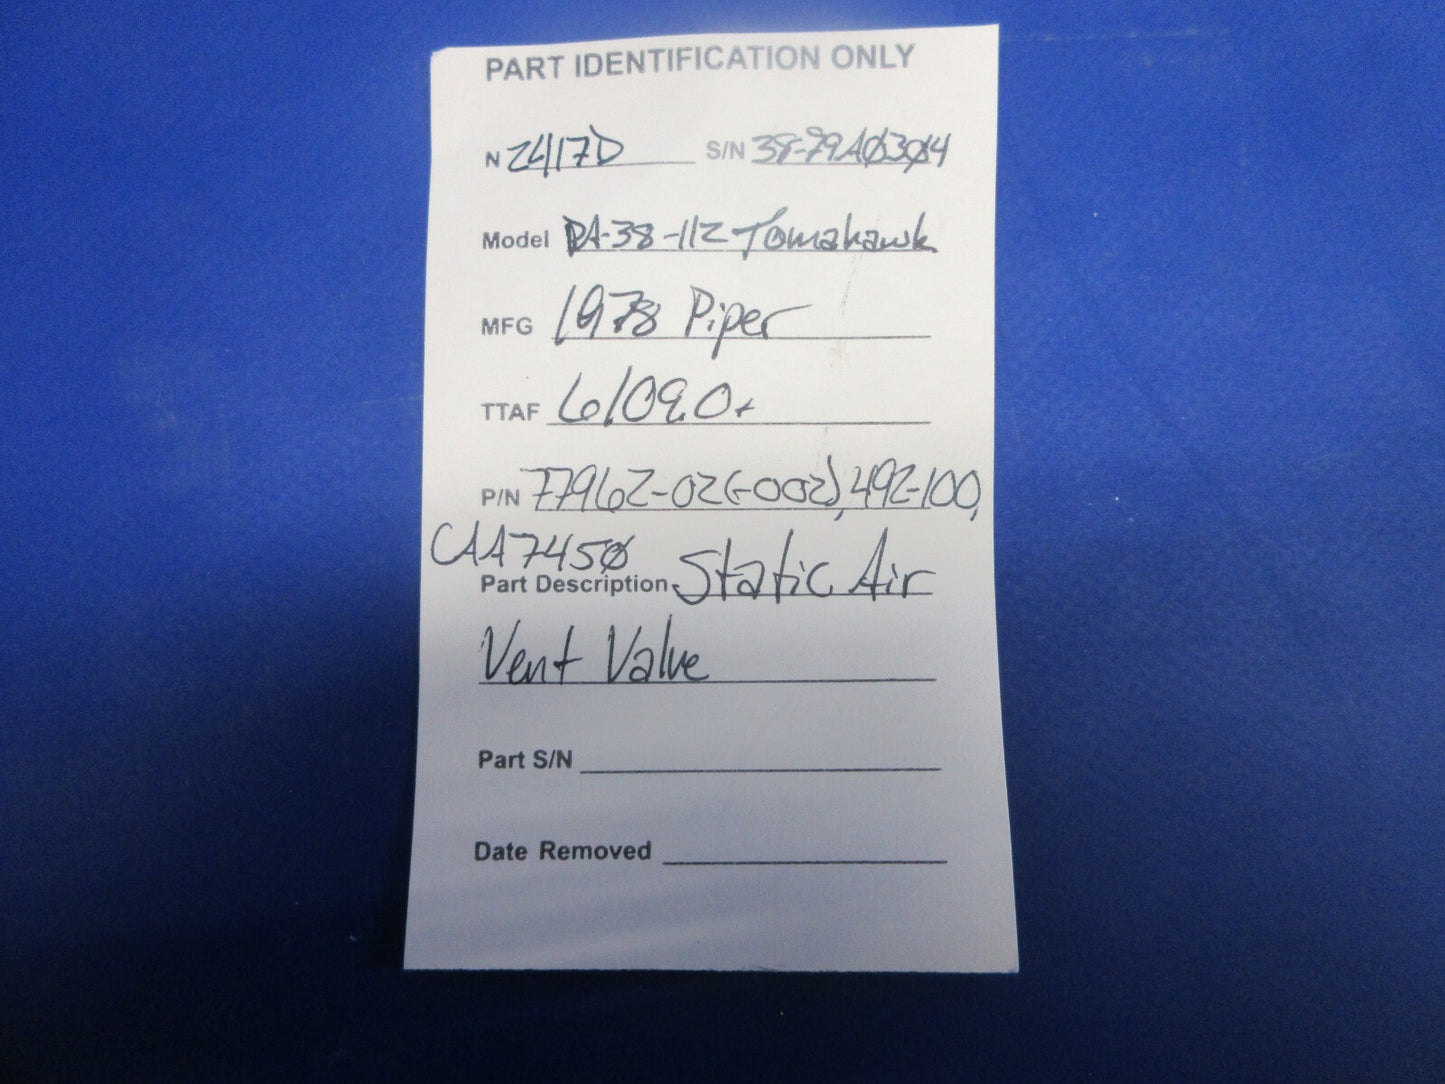 PART IDENTIFICATION ONLY
N 2417D S/N 38-79A0304
Model PA-38-112 Tomahawk
MFG 1978 Piper
TTAF 6109.0+
P/N 77962-02(-002), 492-100,
CAA7450
Part Description Static Air
Vent Valve
Part S/N
Date Removed